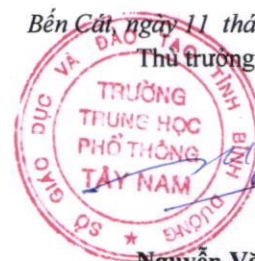 Bến Cát, ngày 11 thá
Thủ trưởng
SỞ GIÁO DỤC VÀ ĐÀO TẠO TỈNH BÌNH DƯƠNG
TRƯỜNG
TRUNG HỌC
PHỔ THÔNG
TÂY NAM
★
Nguyễn Vă